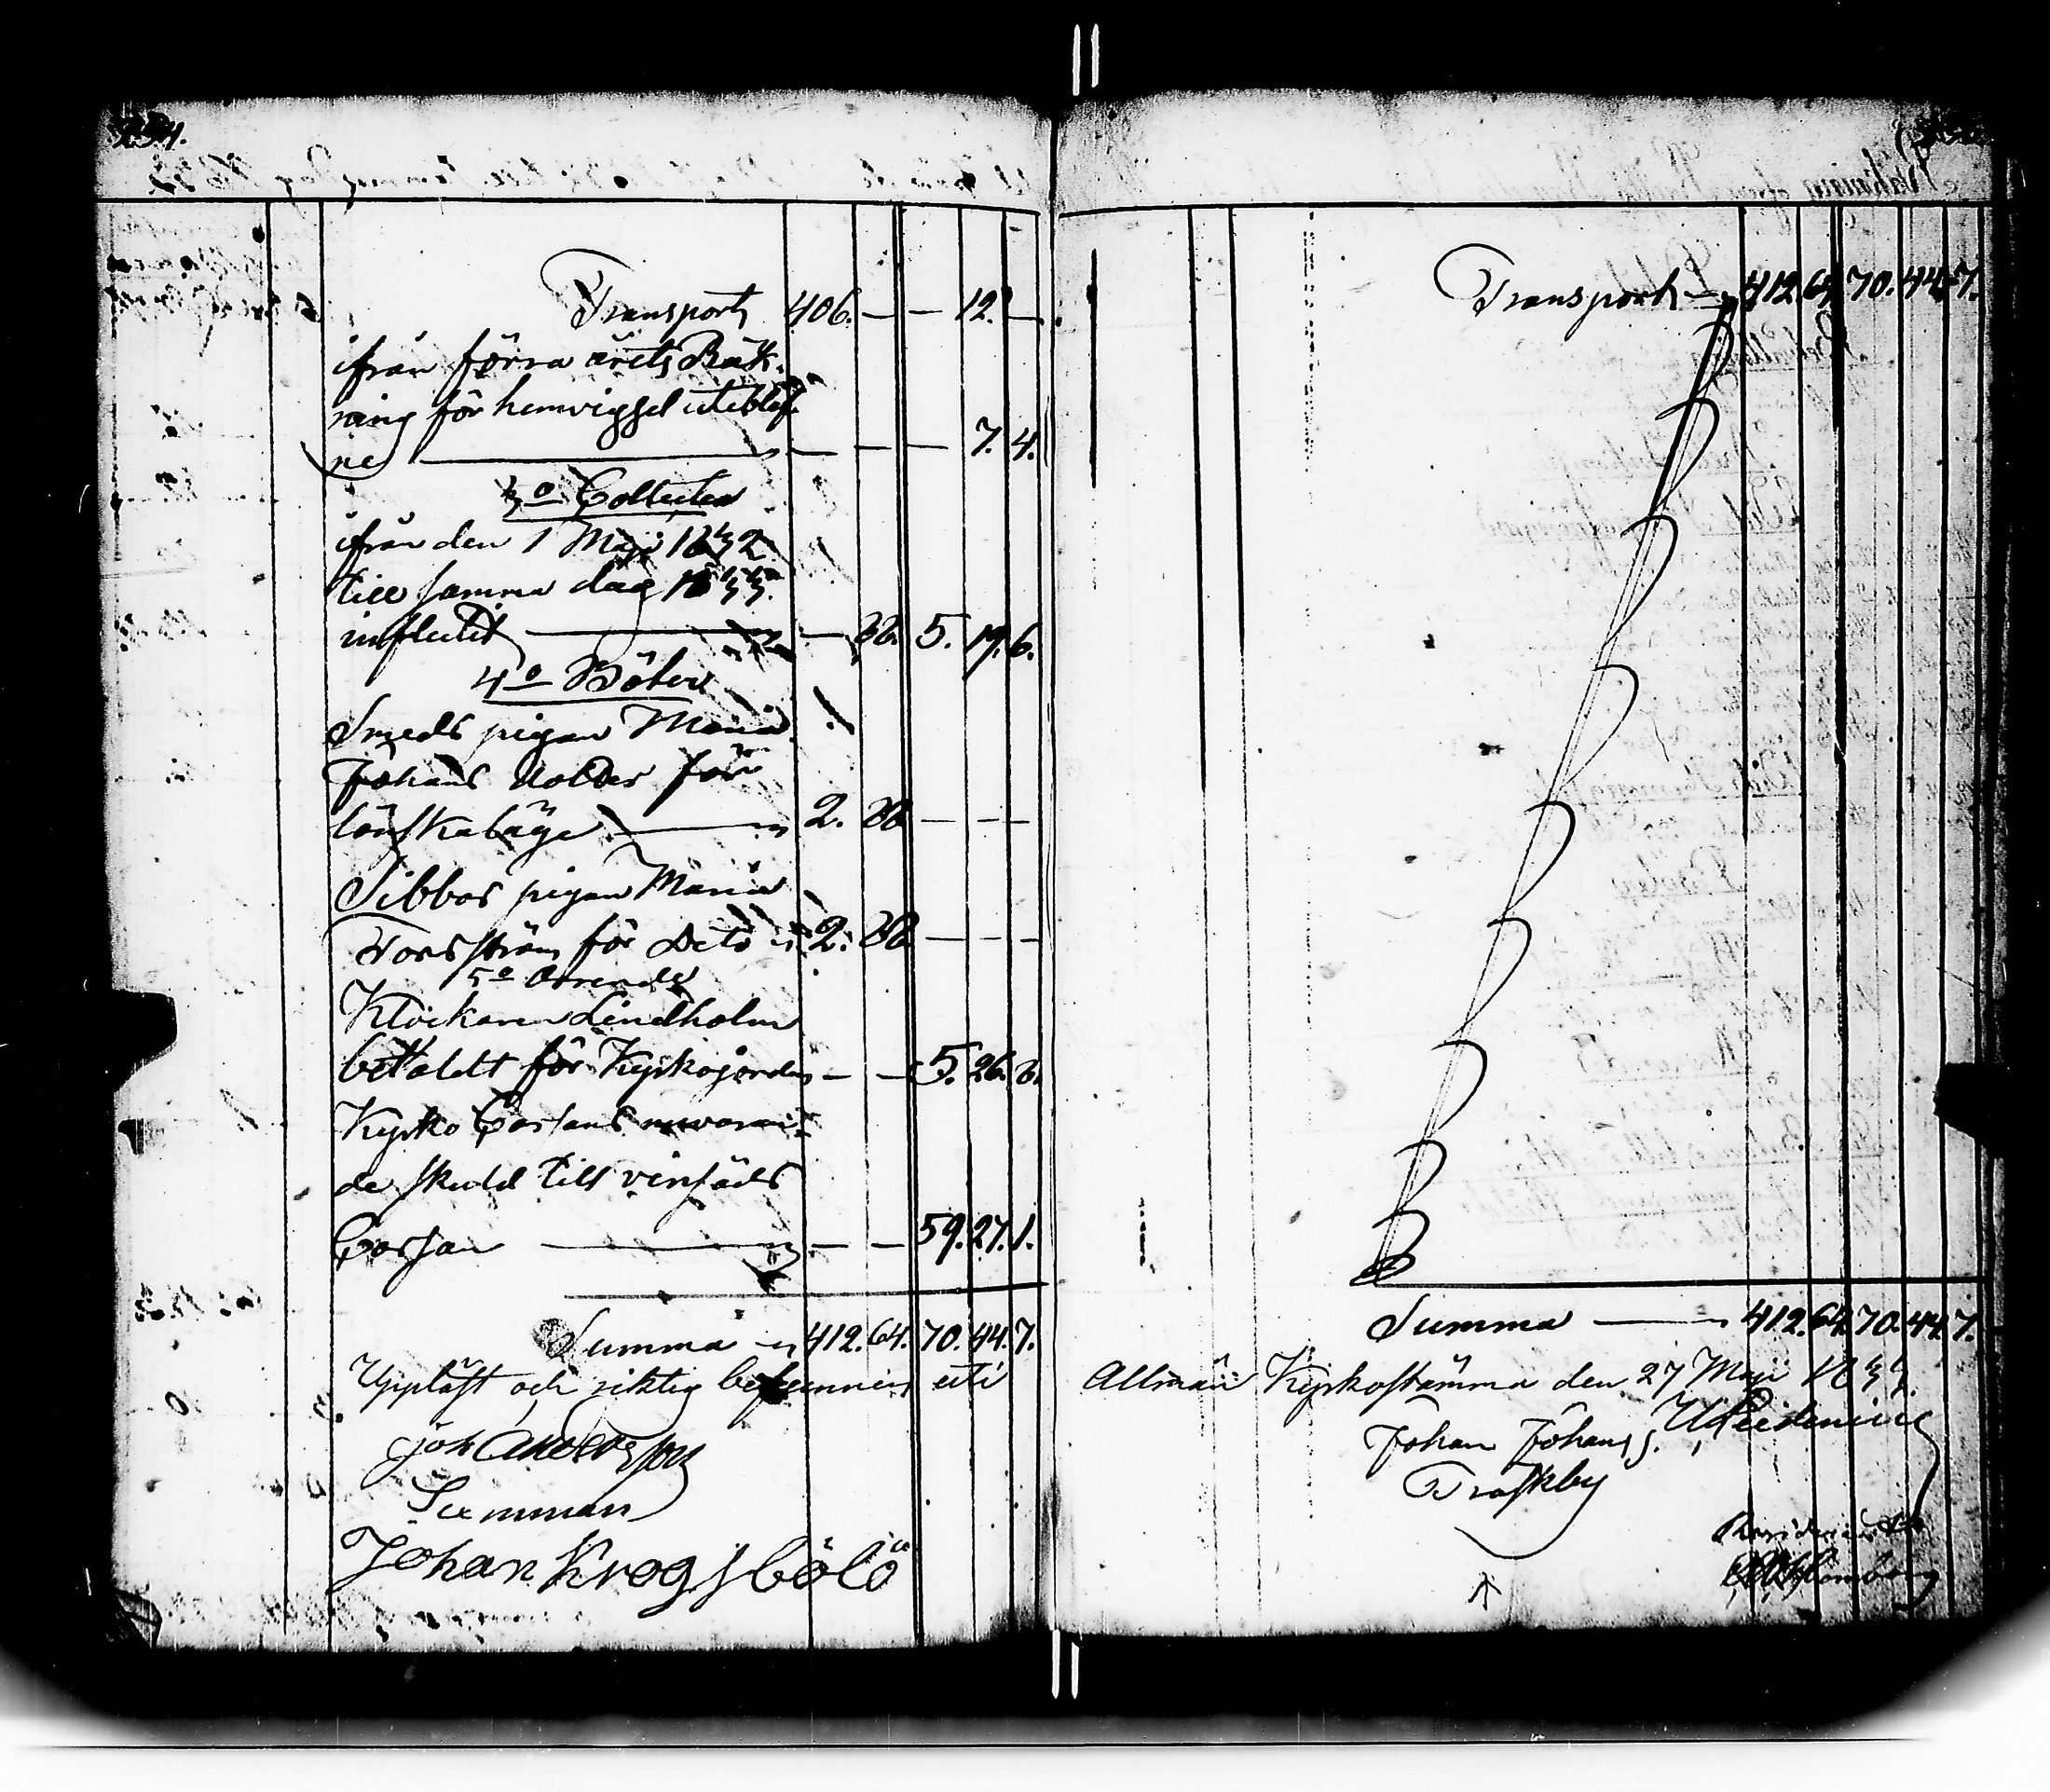 254.
Transport 406. — — 12. —
ifrån förra årets Räk-
ning för hemvigsel uteblef
ne — — — 7. 4.
3o Collecten
ifrån den 1 Maji 1832
till samma dag 1833
influtit — 32. 5. 19. 6.
4o Böter
Smeds pigan Maria
Johans dotter för
lönskaläge 2. 32 — — —
Sibbos pigan Maria
Forsström för Dito 2. 32 — — —
5o Arende
Klockaren Lindholm
betaldt för Kyrkojorden — — 5. 26. 8.
Kyrko Cassans nuvaran-
de skuld till vinsäds
Cassan — — 59. 27. 1.
Summa 412. 64. 70. 44. 7.
Uppläst och riktig befunnen uti
Joh Andersson
Summan
Johan Krogsbölö
Transport 412. 64. 70. 44. 7.
Summa 412. 64. 70. 44. 7.
Allmän Kyrkostämma den 27 Maji 1833.
Johan Johans s.
Träskby